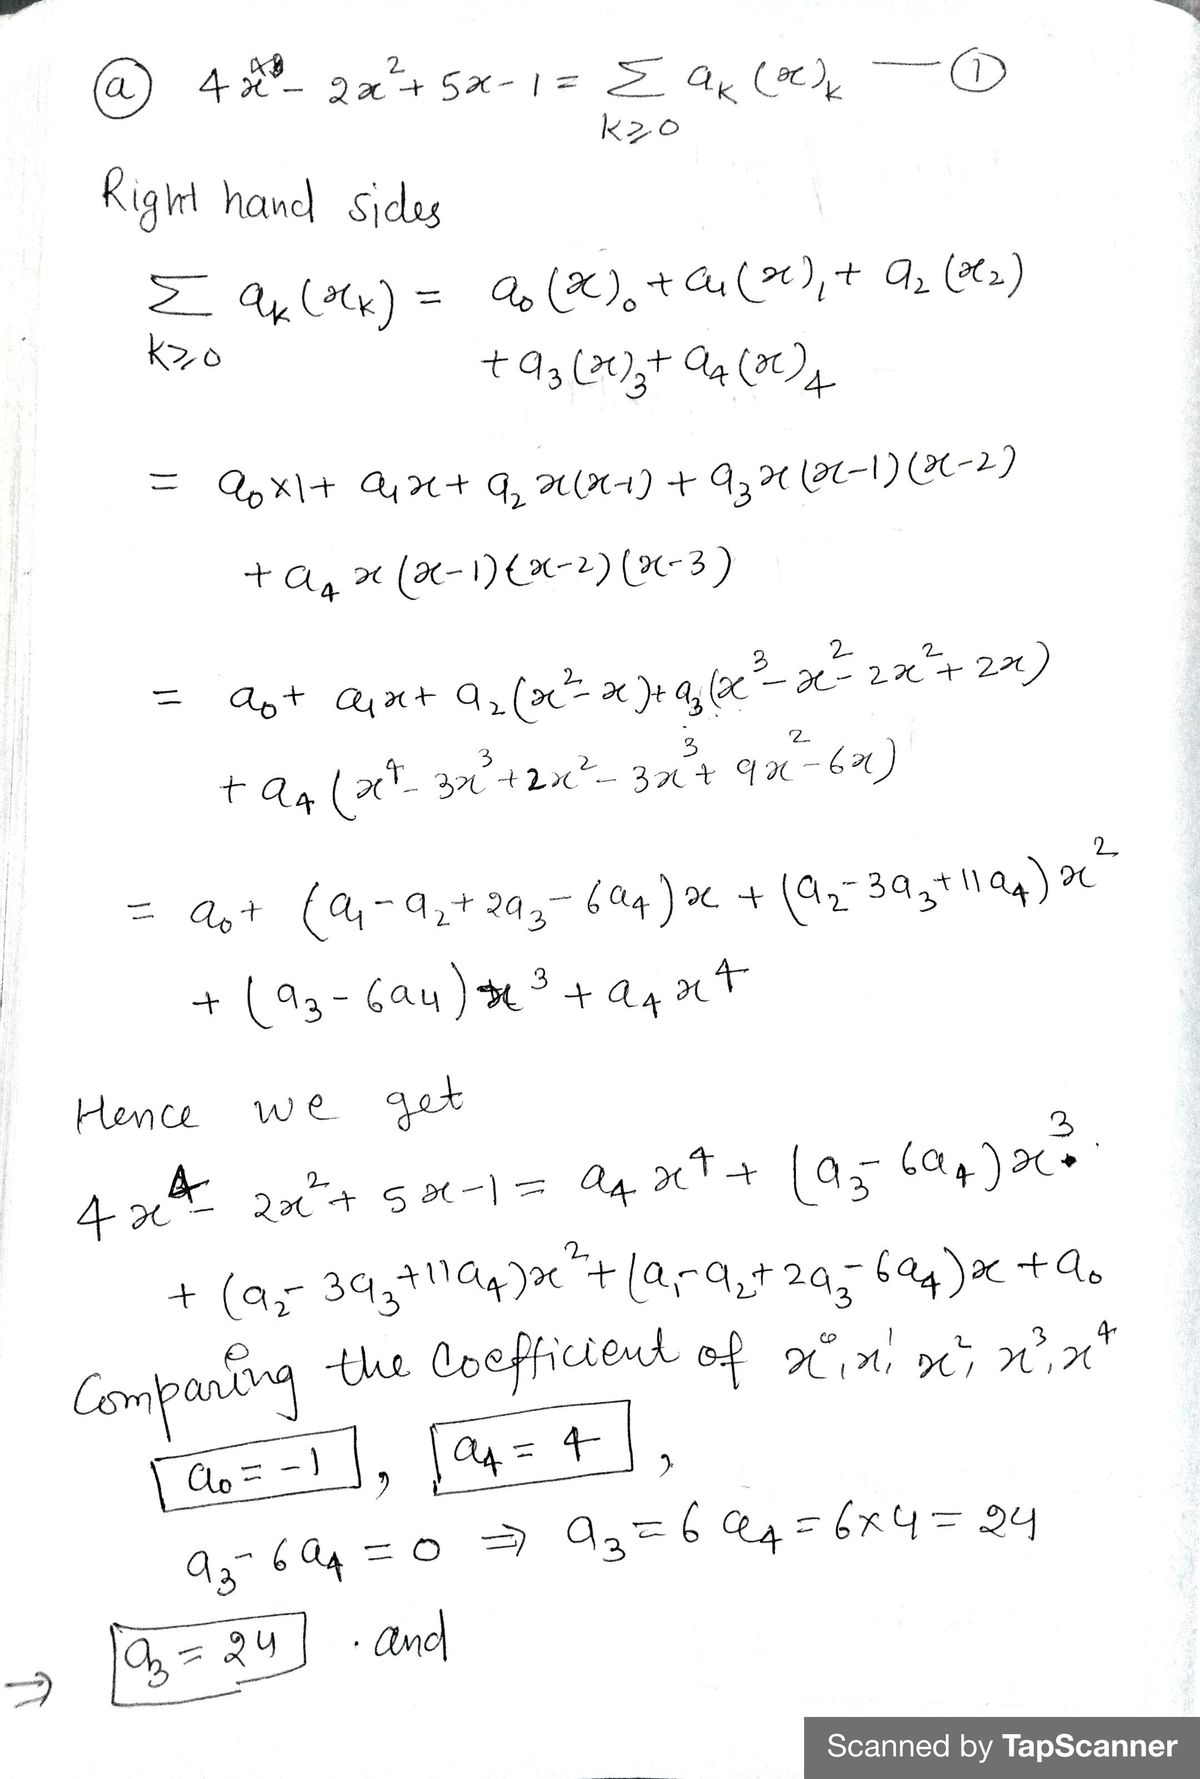 (a) 4x⁴ - 2x² + 5x - 1 = Σ aₖ (x)ₖ — ①
k≥0
Right hand sides
Σ aₖ (xₖ) = a₀ (x)₀ + a₁ (x)₁ + a₂ (x₂)
k≥0
+ a₃ (x)₃ + a₄ (x)₄
= a₀ × 1 + a₁x + a₂ x(x-1) + a₃ x (x-1) (x-2)
+ a₄ x (x-1) (x-2) (x-3)
= a₀ + a₁x + a₂ (x² - x) + a₃ (x³ - x² - 2x² + 2x)
+ a₄ (x⁴ - 3x³ + 2x² - 3x³ + 9x² - 6x)
= a₀ + (a₁ - a₂ + 2a₃ - 6a₄) x + (a₂ - 3a₃ + 11a₄) x²
+ (a₃ - 6a₄) x³ + a₄ x⁴
Hence we get
4x⁴ - 2x² + 5x - 1 = a₄ x⁴ + (a₃ - 6a₄) x³
+ (a₂ - 3a₃ + 11a₄) x² + (a₁ - a₂ + 2a₃ - 6a₄) x + a₀
Comparing the coefficient of x⁰, x¹, x², x³, x⁴
a₀ = -1 , a₄ = 4 ,
a₃ - 6a₄ = 0 ⇒ a₃ = 6 a₄ = 6×4 = 24
⇒ a₃ = 24 . and
Scanned by TapScanner